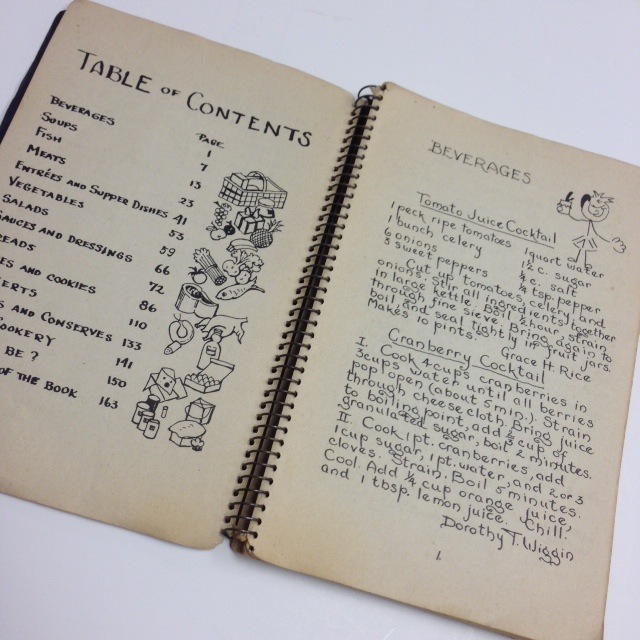 TABLE OF CONTENTS
PAGE
BEVERAGES 1
SOUPS 7
FISH 13
MEATS 23
ENTRÉES AND SUPPER DISHES 41
VEGETABLES 53
SALADS 59
AUCES AND DRESSINGS 66
READS 72
ES AND COOKIES 86
ERTS 110
S AND CONSERVES 133
OOKERY 141
BE ? 150
OF THE BOOK 163
BEVERAGES
Tomato Juice Cocktail
1 peck ripe tomatoes 1 quart water
1 bunch celery ½ c. sugar
6 onions c. salt
3 sweet peppers tsp. pepper
Cut up tomatoes, celery and
onions. ingredients together
in large kettle. Boil 2 hours, strain
through fine sieve. Bring again to
boil and seal tightly in fruit jars.
Makes 10 pints. Grace H. Rice
Cranberry Cocktail
I. Cook 4 cups cranberries in
3 cups water until all berries
pop open (about 5 min.) Strain
through cheese cloth. Bring juice
to boiling point, add ⅔ cup of
granulated sugar, boil 2 minutes
II. Cook 1 pt. cranberries, add
1 cup sugar, 1 pt. water, and 2 or 3
cloves. Strain. Boil 5 minutes
Cool. Add ¼ cup orange juice,
and 1 tbsp. lemon juice. Chill.
Dorothy T. Wiggin
1